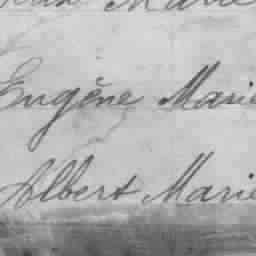 Marie
Eugène Marie
Albert Marie